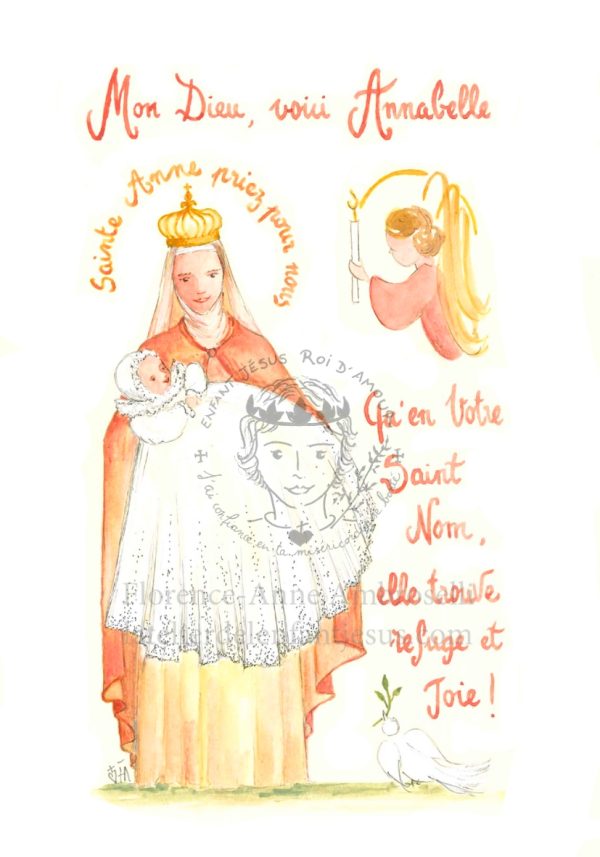 Mon Dieu, voici Annabelle
Sainte Anne priez pour nous
Qu'en Votre
Saint
Nom,
elle trouve
refuge et
Joie !
ENFANT JÉSUS ROI D'AMOUR
J'ai confiance en ta miséricordieuse bonté
Florence-Anne
atelierdelenfantjesus.com